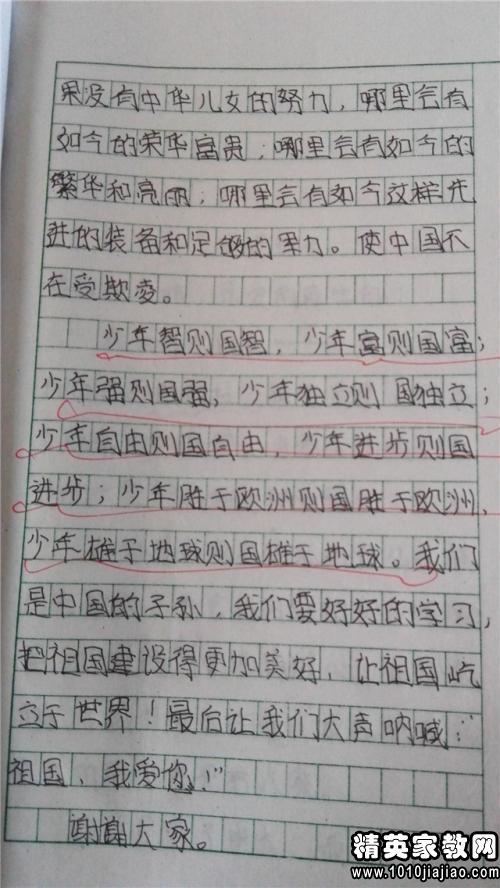 果没有中华儿女的努力，哪里会有
如今的荣华富贵；哪里会有如今的
繁华和亮丽；哪里会有如今这样先
进的装备和足够的果力。使中国不
在受欺凌。
少年智则国智，少年富则国富；
少年强则国强，少年独立则国独立；
少年自由则国自由，少年进步则国
进步；少年胜于欧洲则国胜于欧洲，
少年雄于地球则国雄于地球。我们
是中国的子孙，我们要好好的学习，
把祖国建设得更加美好，让祖国屹
立于世界！最后让我们大声呐喊：“
祖国、我爱您！”
谢谢大家。
精英家教网
www.1010jiajiao.com